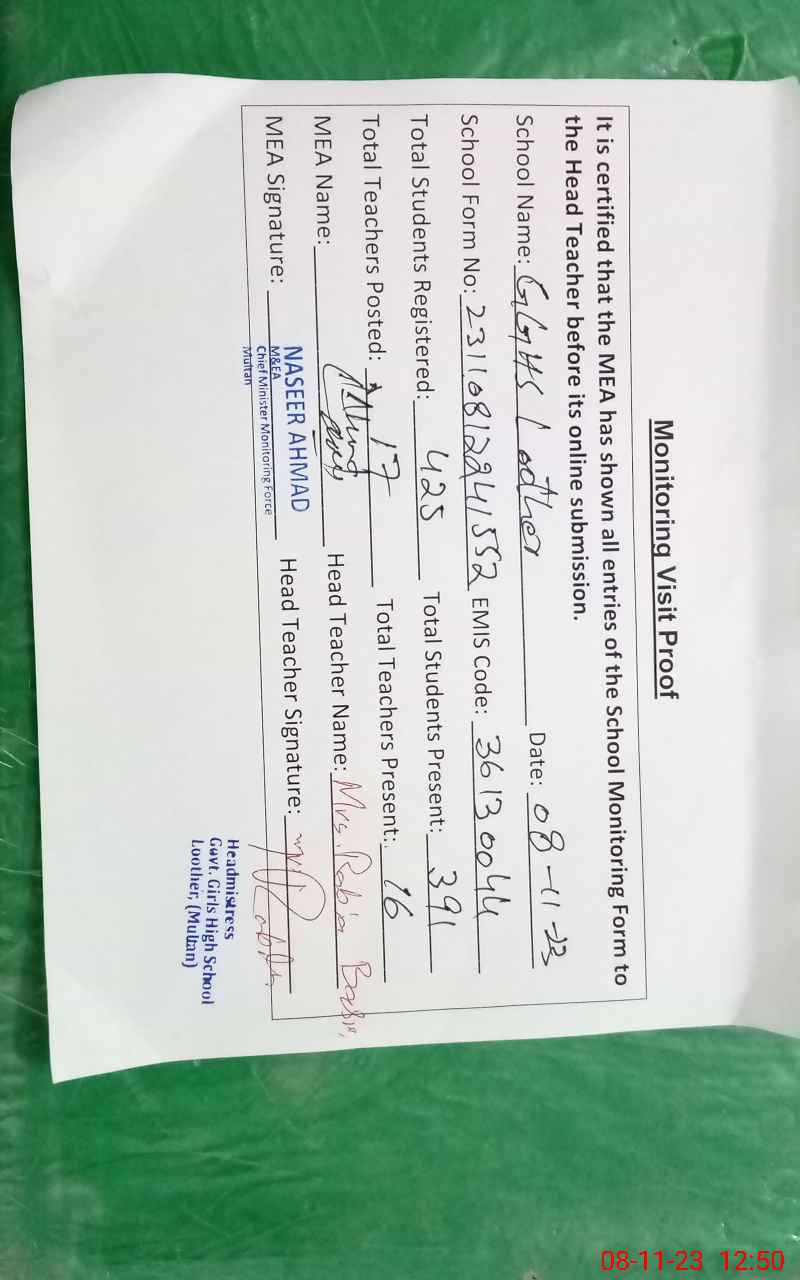 Monitoring Visit Proof
It is certified that the MEA has shown all entries of the School Monitoring Form to
the Head Teacher before its online submission.
School Name: GGHS Lother Date: 08-11-23
School Form No: 231108122941552 EMIS Code: 36130044
Total Students Registered: 425 Total Students Present: 391
Total Teachers Posted: 17 Total Teachers Present: 16
MEA Name: Head Teacher Name: Mrs. Rabia
MEA Signature: NASEER AHMAD Head Teacher Signature:
M&EA
Chief Minister Monitoring Force
Multan
Headmistress
Govt. Girls High School
Loother, (Multan)
08-11-23 12:50